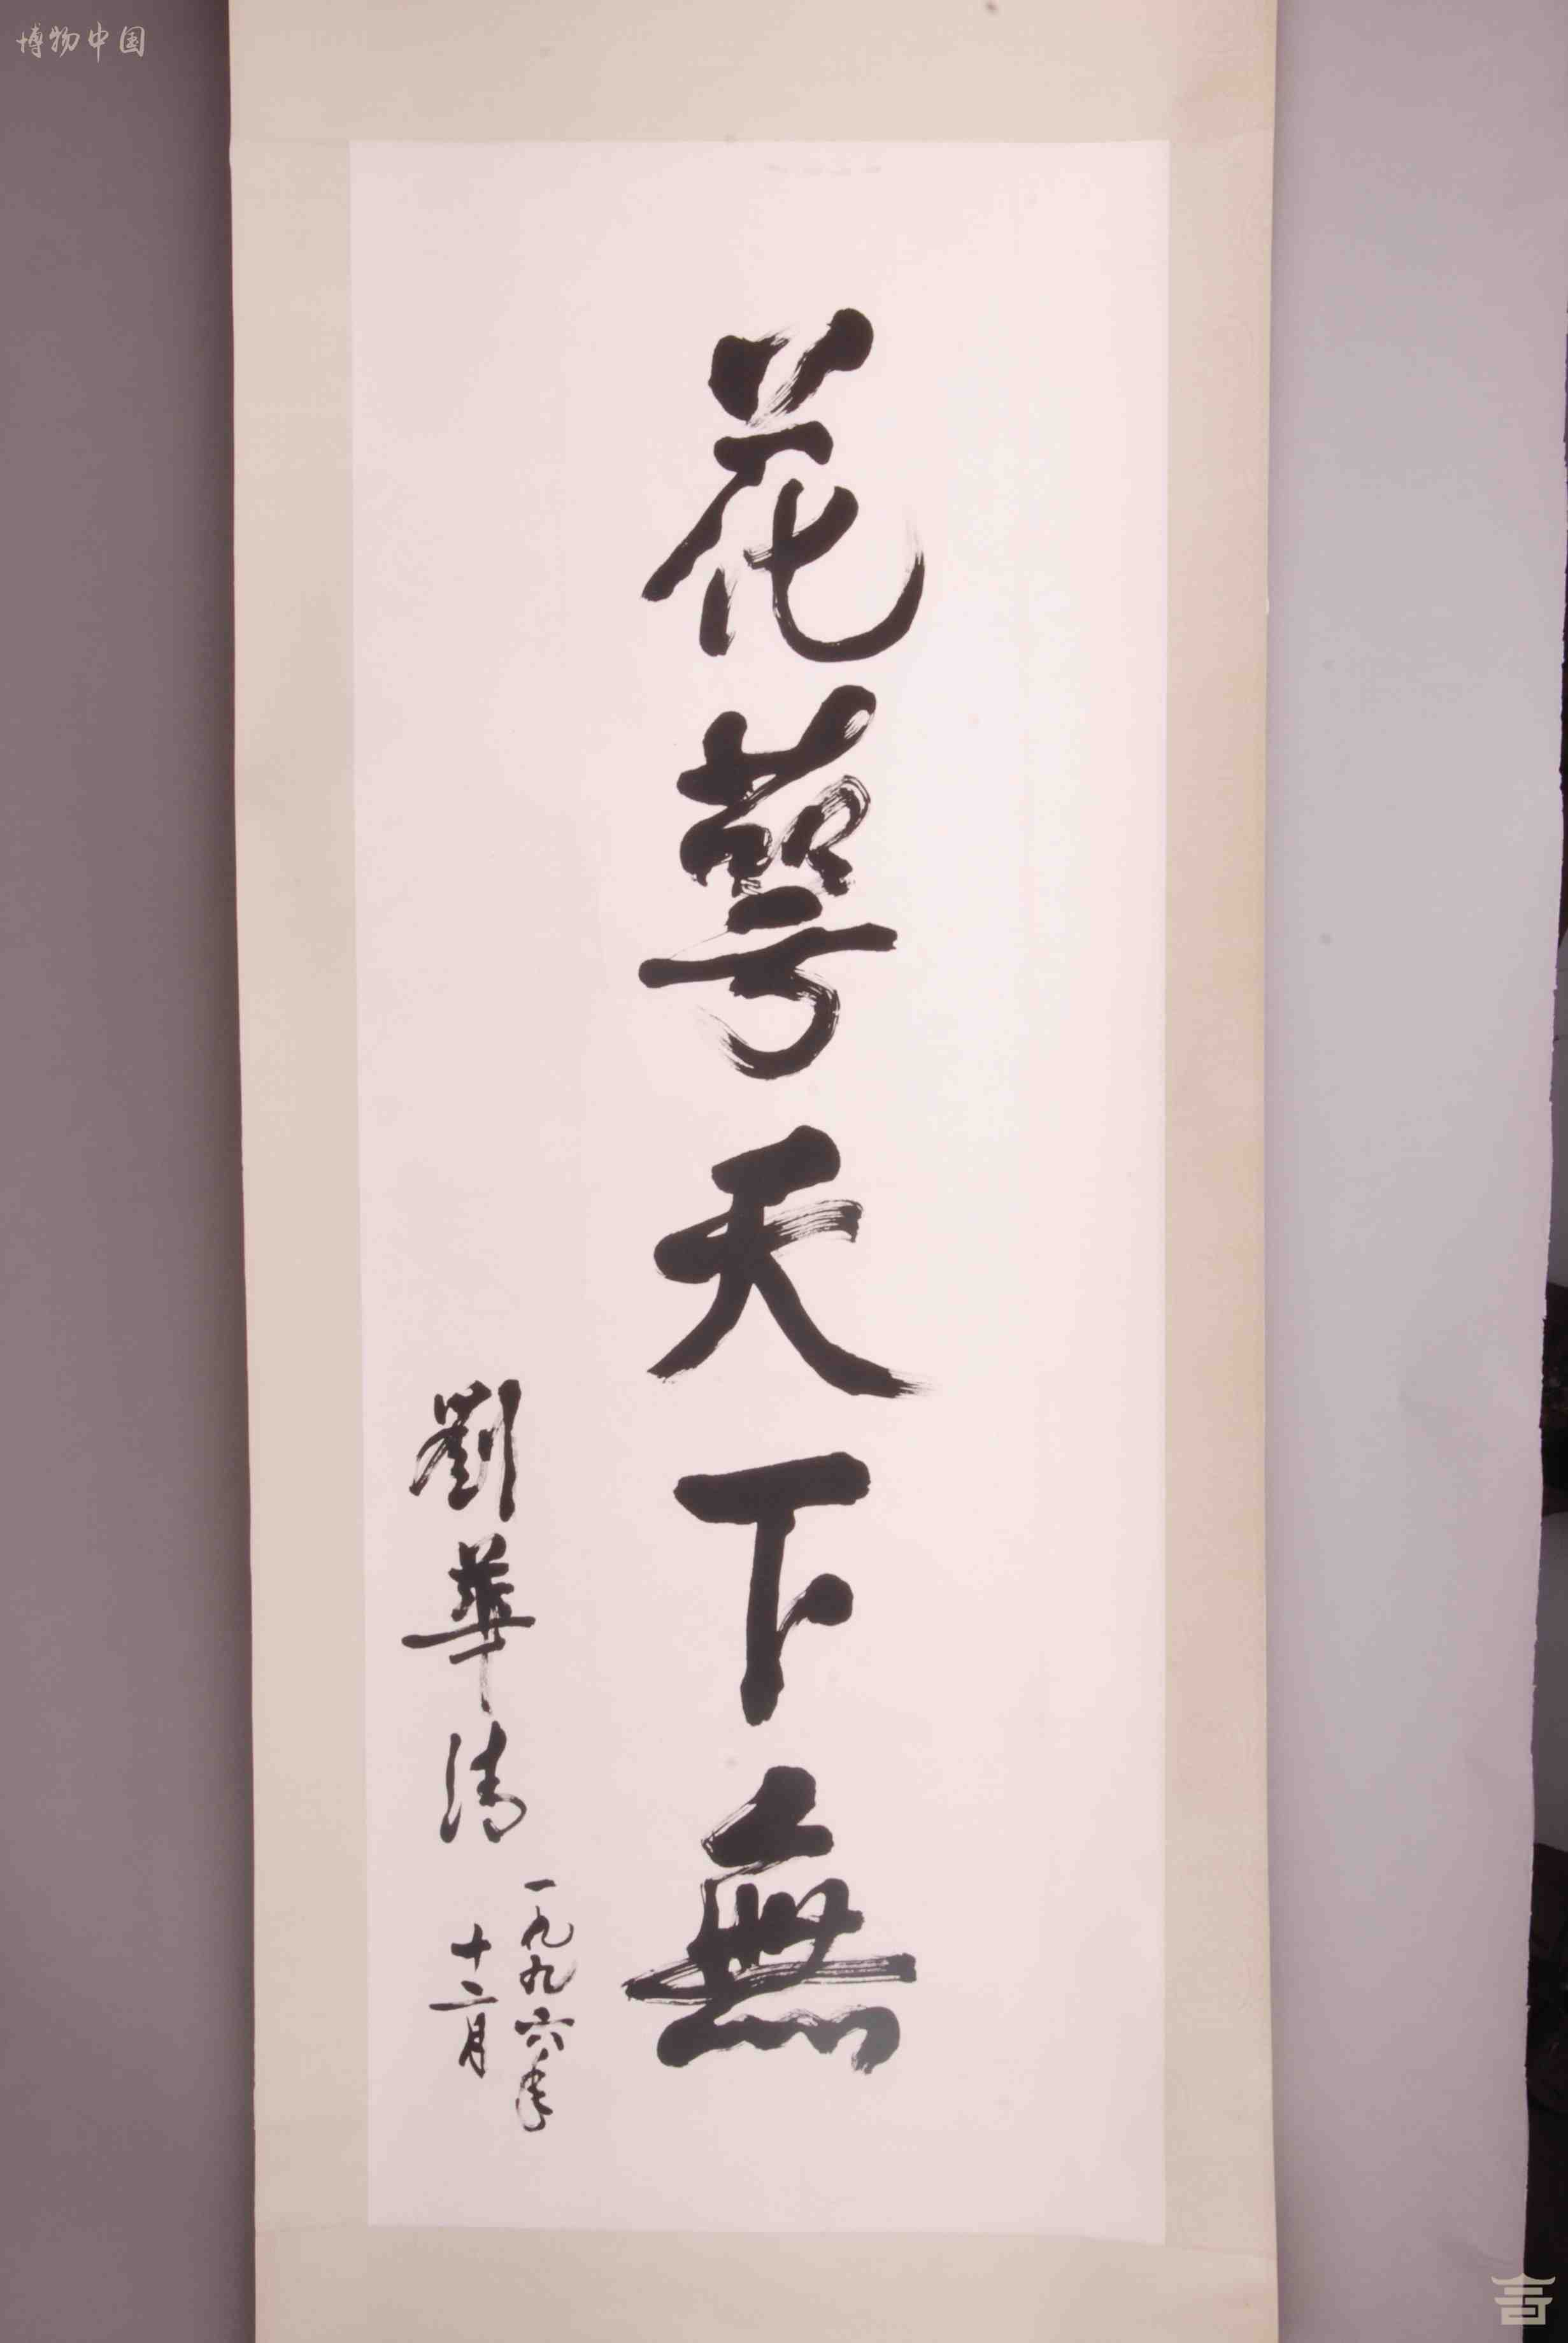 花萼天下無
劉華清
一九九六年
十二月
博物中国